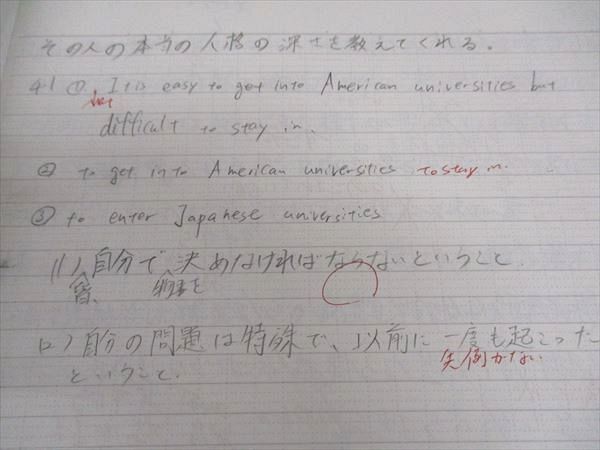 その人の本当の人格の深さを教えてくれる.
41 ① It is easy to get into American universities but
that
difficult to stay in.
② to get into American universities to stay in.
③ to enter Japanese universities
(1) 自分で決めなければならないということ.
皆、 物事を
ロ) 自分の問題は特殊で、以前に一度も起こった
先例がない
ということ.